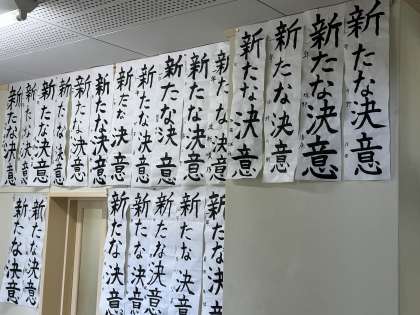 新たな決意
新たな決意
新たな決意
新たな決意
新たな決意
新たな決意
新たな決意
新たな決意
新たな決意
新たな決意
新たな決意
新たな決意
新たな決意
新たな決意
新たな決意
新たな決意
新たな決意
新たな決意
新たな決意
新たな決意
新たな決意
新たな決意